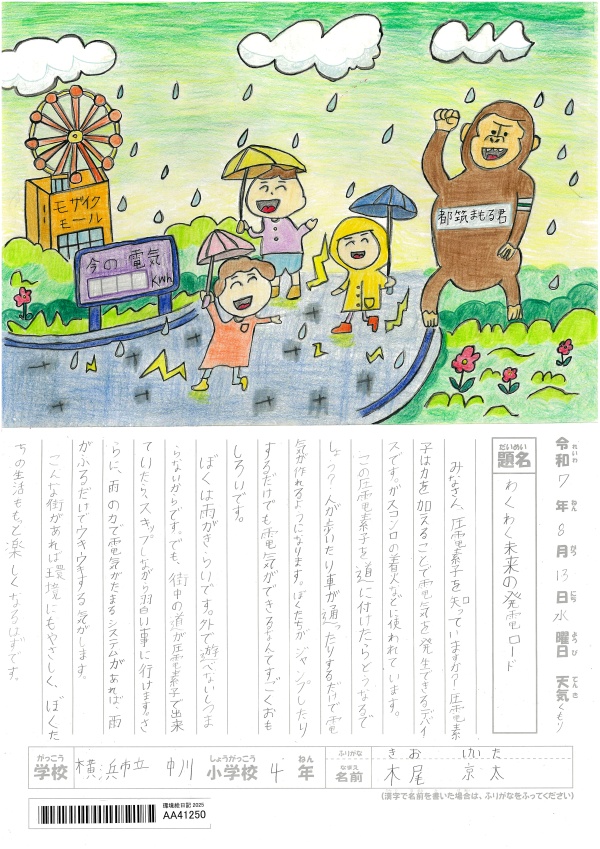 モザイク
モール
今の電気
KWh
都筑まもる君
令和7年8月13日水曜日 天気くもり
れいわ ねん がつ にち ようび てんき
だいめい
題名
わくわく未来の発電ロード
みなさん、圧電素子を知っていますか?圧電素
子は力を加えることで電気を発生できるデバイ
スです。ガスコンロの着火などに使われています。
この圧電素子を道に付けたらどうなるで
しょう?人が歩いたり車が通ったりするだけで電
気が作れるようになります。ぼくたちがジャンプしたり
するだけでも電気ができるなんてすごくおも
しろいです。
ぼくは雨がきらいです。外で遊べないしつま
らないからです。でも、街中の道が圧電素子で出来
ていたら、スキップしながら習い事に行けます。さ
らに、雨の力で電気がたまるシステムがあれば、雨
がふるだけでウキウキする気がします。
こんな街があれば環境にもやさしく、ぼくた
ちの生活ももっと楽しくなるはずです。
がっこう しょうがっこう ねん
学校 横浜市立 中川 小学校 4年
ふりがな きお けいた
なまえ
名前 木尾 京太
(漢字で名前を書いた場合は、ふりがなをふってください)
環境絵日記 2025
AA41250